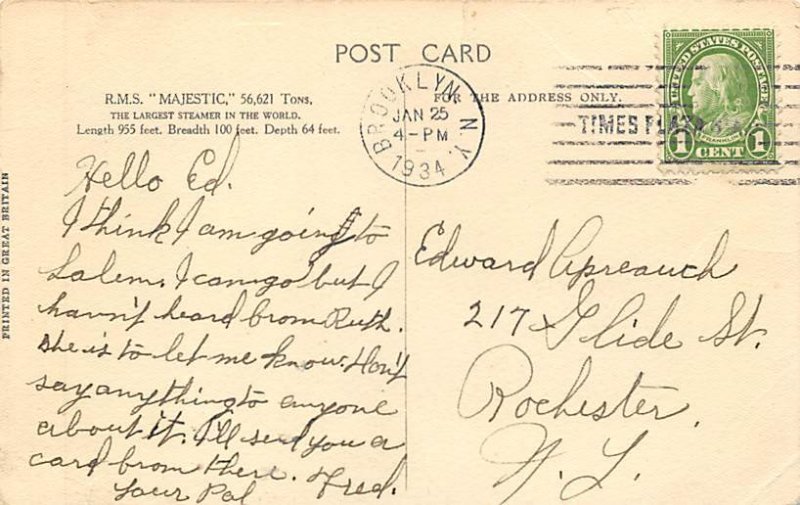 POST CARD
R.M.S. "MAJESTIC," 56,621 Tons,
THE LARGEST STEAMER IN THE WORLD.
Length 955 feet. Breadth 100 feet. Depth 64 feet.
FOR THE ADDRESS ONLY.
BROOKLYN, N.Y.
JAN 25
4-PM
1934
TIMES PLAZA STA.
UNITED STATES POSTAGE
FRANKLIN
1 CENT 1
PRINTED IN GREAT BRITAIN
Hello Ed.
I think I am going to
Salem. I can go but I
havn't heard from Ruth.
She is to let me know. Don't
say anything to anyone
about it. I'll send you a
card from there.
Your Pal Fred.
Edward
217 Glide St.
Rochester,
N. Y.